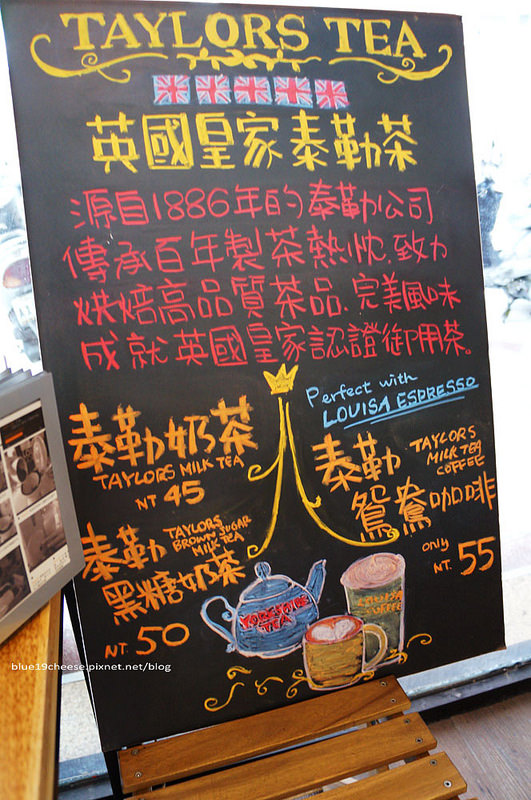 TAYLORS TEA
英國皇家泰勒茶
源自1886年的泰勒公司
傳承百年製茶熱忱.致力
烘焙高品質茶品.完美風味
成就英國皇家認證御用茶。
Perfect with
LOUISA ESPRESSO
泰勒奶茶
TAYLORS MILK TEA
NT 45
泰勒
TAYLORS
BROWN SUGAR
MILK TEA
黑糖奶茶
NT. 50
泰勒
TAYLORS
MILK TEA
COFFEE
鴛鴦咖啡
ONLY
NT. 55
YORKSHIRE
TEA
LOUISA
COFFEE
blue19cheese.pixnet.net/blog